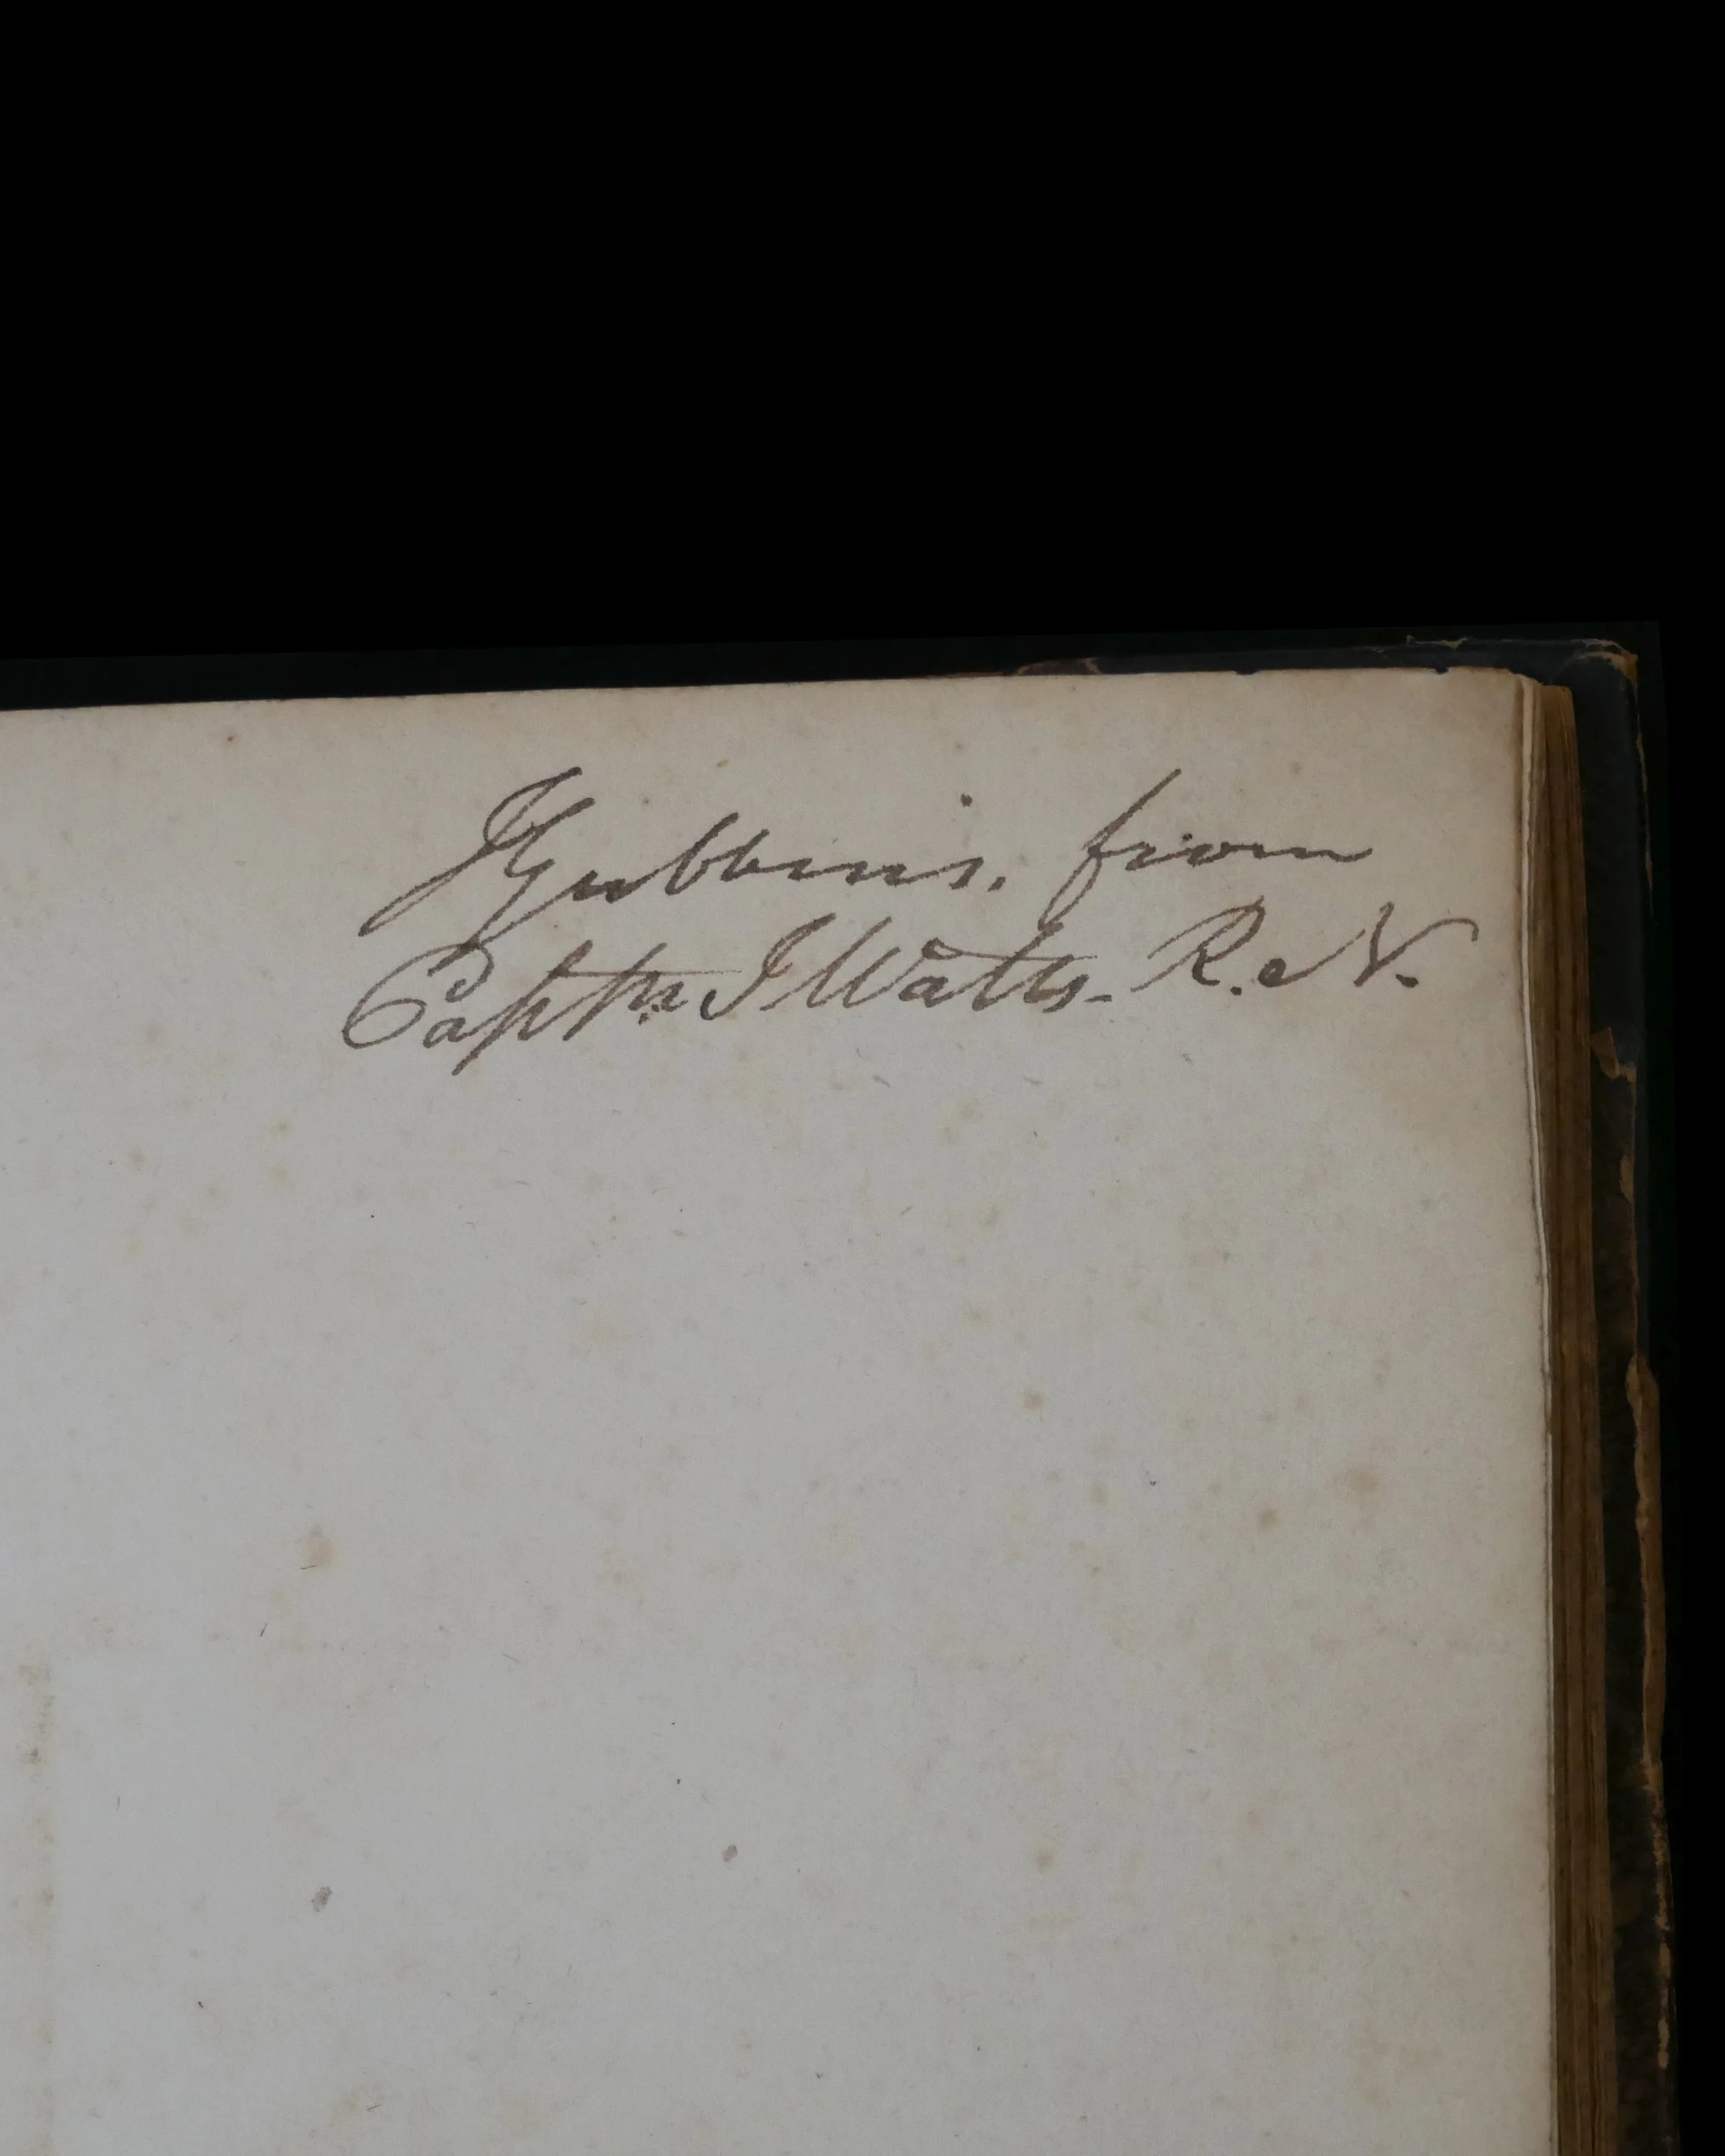 J Gubbins. from
Captn J Watts- R.N.